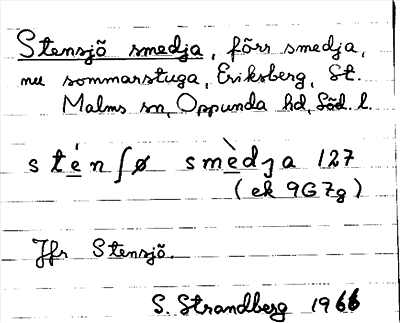 Stensjö smedja, förr smedja,
nu sommarstuga, Eriksberg, St.
Malms sn, Oppunda hd, Söd. l.
sténʃø smèdȷa 127
(ek 9G7g)
Jfr Stensjö.
S. Strandberg 1966